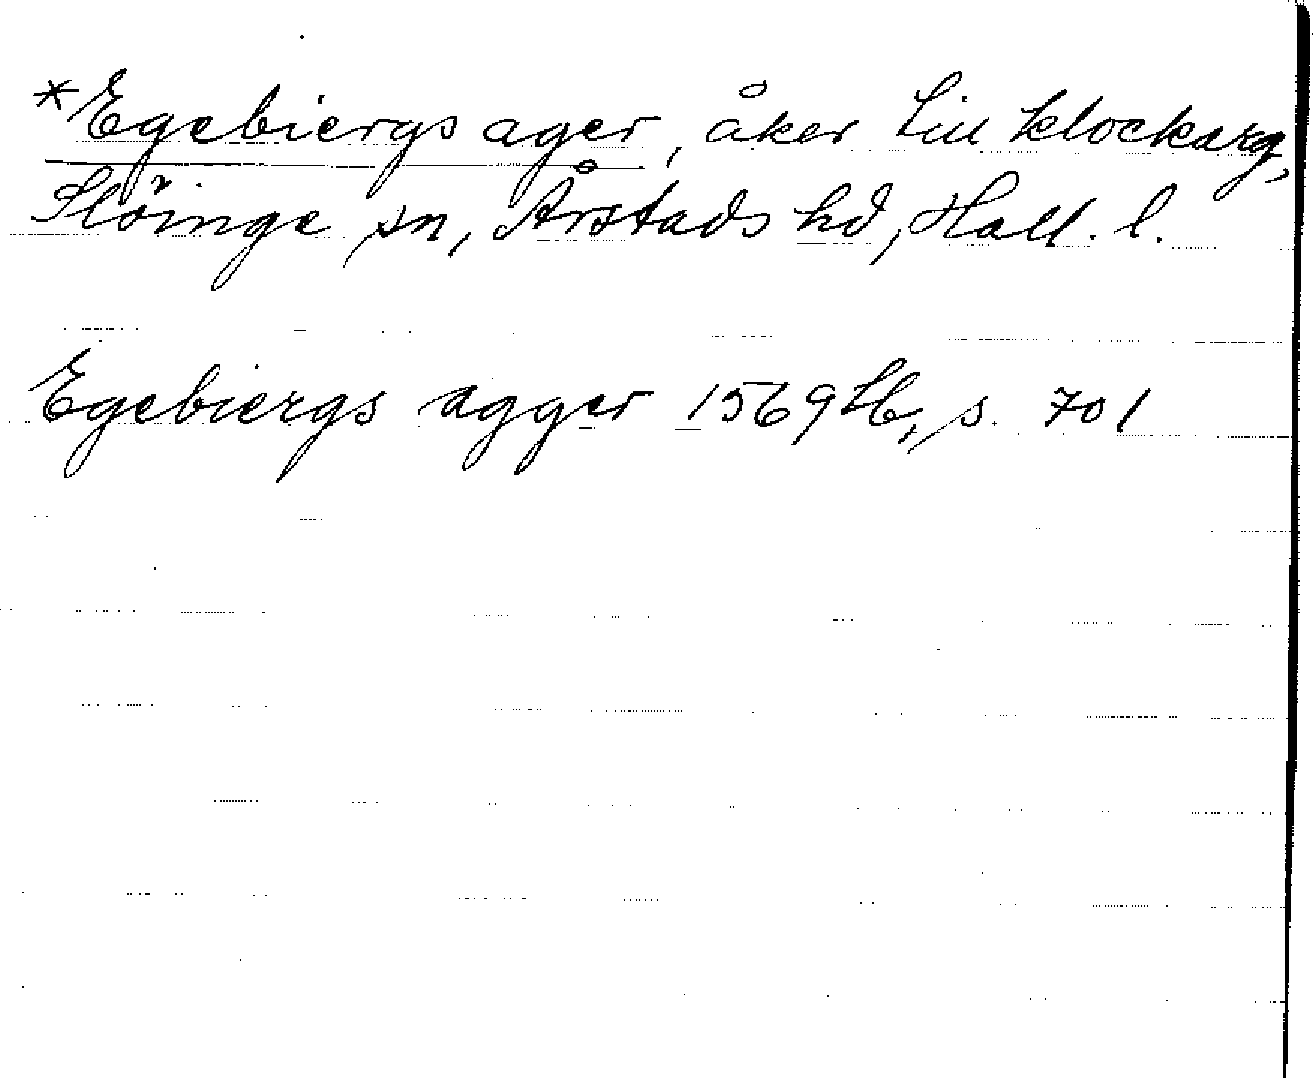 *Egebiergs ager, åker till klockarg,
Slöinge sn, Årstads hd, Hall. l.
Egebiergs agger 1569 Lb, s. 701